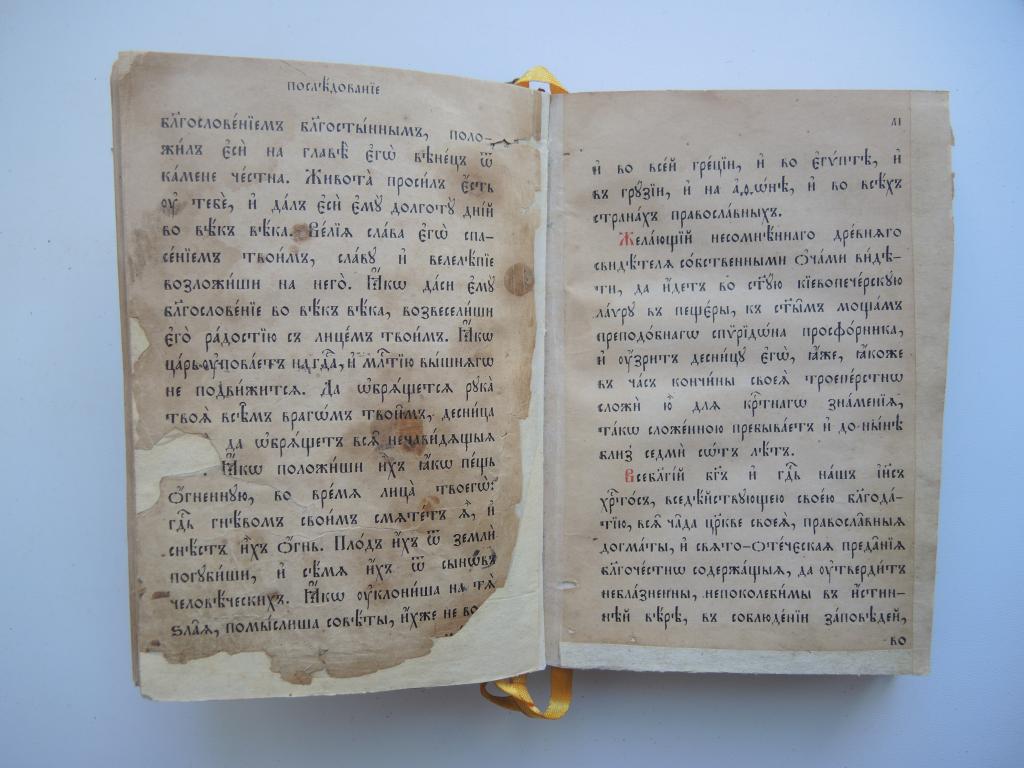 послѣ́дованїе
бл҃гослове́нїемъ бл҃госты́ннымъ, поло-
жи́лъ є҆сѝ на главѣ̀ є҆гѡ̀ вѣне́цъ ѿ
ка́мене че́стна. Живота̀ проси́лъ є҆́сть
оу҆ тебє̀, и҆ да́лъ є҆сѝ є҆мꙋ̀ долготꙋ̀ дні́й
во вѣ́къ вѣ́ка. Ве́лїѧ сла́ва є҆гѡ̀ спа-
се́нїемъ твои́мъ, сла́вꙋ и҆ велелѣ́пїе
возложи́ши на него̀. Ꙗ҆́кѡ да́си є҆мꙋ̀
бл҃гослове́нїе во вѣ́къ вѣ́ка, возвесели́ши
є҆го̀ ра́достїю съ лице́мъ твои́мъ. Ꙗ҆́кѡ
ца́рь оу҆пова́етъ на гд҇а, и҆ мл҇тїю вы́шнѧгѡ
не подви́житсѧ. Да ѡ҆брѧ́щетсѧ рꙋка̀
твоѧ̀ всѣ́мъ врагѡ́мъ твои̑мъ, десни́ца
да ѡ҆брѧ́щетъ всѧ̑ ненави́дѧщыѧ
Ꙗ҆́кѡ положи́ши и҆̀хъ ꙗ҆́кѡ пе́щь
ѻ҆́гненнꙋю, во вре́мѧ лица̀ твоегѡ̀:
гд҇ь гнѣ́вомъ свои́мъ смѧте́тъ ѧ҆̀, и҆
снѣ́стъ и҆̀хъ ѻ҆́гнь. Пло́дъ и҆́хъ ѿ землѝ
погꙋби́ши, и҆ сѣ́мѧ и҆́хъ ѿ сынѡ́въ
человѣ́ческихъ. Ꙗ҆́кѡ оу҆клони́ша на тѧ̀
ѕла̑ѧ, помы́слиша совѣ́ты, и҆́хже не во
аі
и҆ во все́й гре́цїи, и҆ во є҆гѵ́птѣ, и҆
въ грꙋ́зїи, и҆ на а҆ѳѡ́нѣ, и҆ во всѣ́хъ
страна́хъ правосла́вныхъ.
Жела́ющїй несомнѣ́ннаго дре́внѧго
свидѣ́телѧ со́бственными ѻ҆ча́ми ви́дѣ-
ти, да и҆́детъ во ст҃ꙋ́ю кїевопече́рскꙋю
ла́врꙋ въ пеще́ры, къ ст҃ы̑мъ моща́мъ
преподо́бнагѡ спѷрїдѡ́на просфо́рника,
и҆ оу҆́зритъ десни́цꙋ є҆гѡ̀, ꙗ҆́же, ꙗ҆́коже
въ ча́съ кончи́ны своеѧ̀ троепе́рстнѡ
сложѝ ю҆̀ для кр҇тнагѡ зна́менїѧ,
та́кѡ сложе́нною пребыва́етъ и҆ до-ны́нѣ
бли́з̾ седмѝ сѡ́тъ лѣ́тъ.
Всебл҃гі́й бг҃ъ и҆ гд҇ь на́шъ і҆и҃съ
хр҇то́съ, вседѣ́йствꙋющею свое́ю бл҃года́-
тїю, всѧ̑ ча̑да цр҃кве своеѧ̀, правосла̑вныѧ
догма́ты, и҆ свѧ́то-оте́ческаѧ преда̑нїѧ
бл҃гоче́стнѡ содержа́щыѧ, да оу҆тверди́тъ
небла́зненны, непоколеби́мы въ и҆́стин-
нѣй вѣ́рѣ, въ соблюде́нїи за́повѣдей,
во